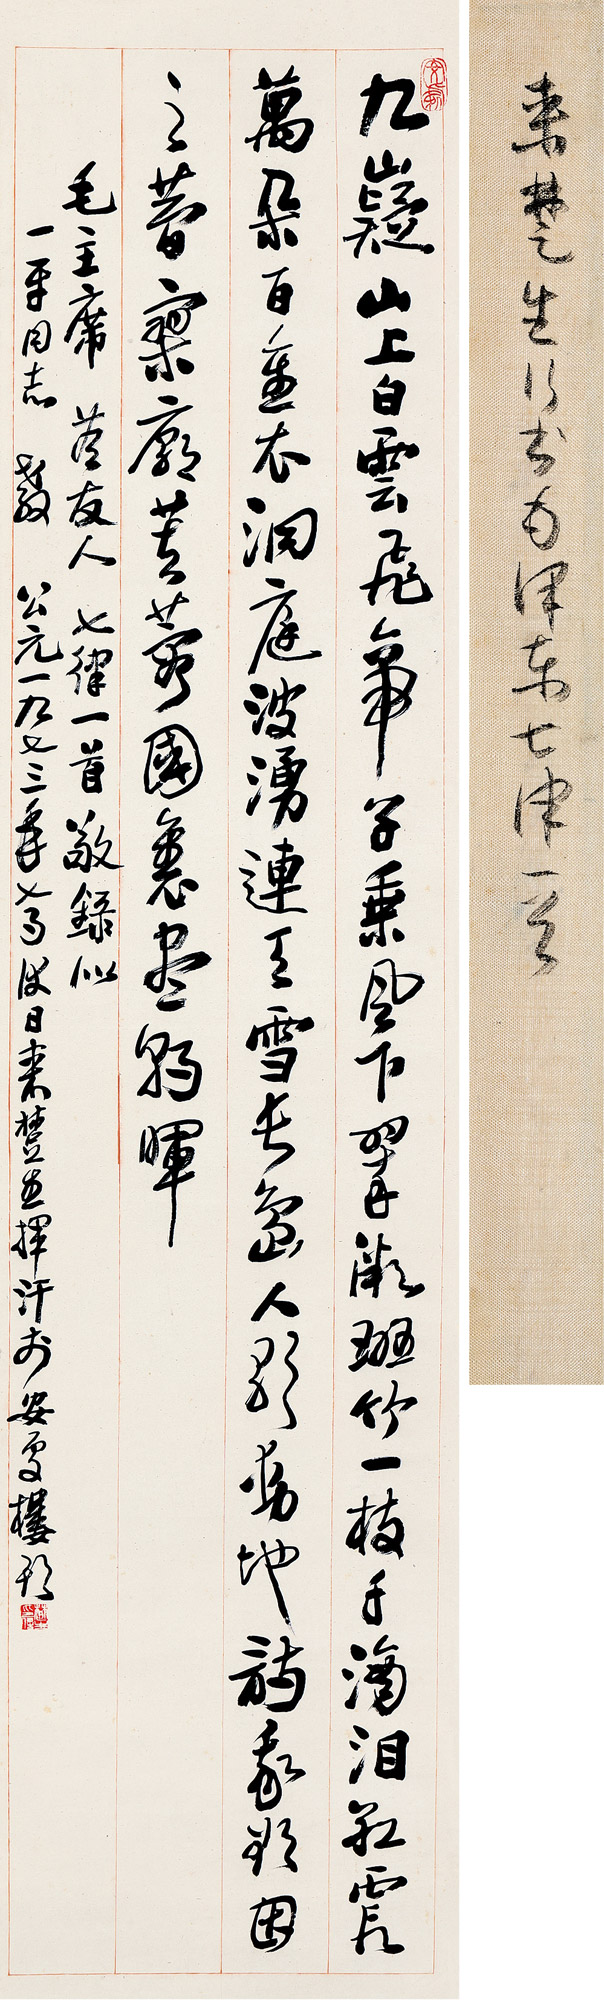 來楚生行書毛澤東七律一首
九嶷山上白雲飛帝子乘風下翠微斑竹一枝千滴泪紅霞
萬朵百重衣洞庭波湧連天雪長島人歌動地詩我欲因
之夢寥廓芙蓉國裏盡朝暉
毛主席 答友人 七律一首 敬録似
一平同志 教 公元一九七三年 日來楚生揮汗於安處樓